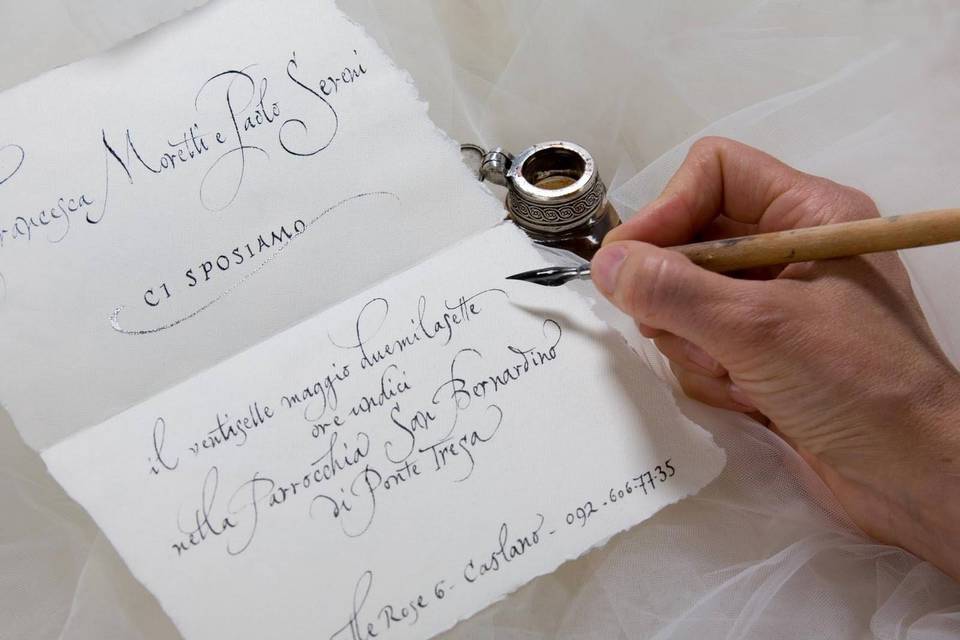 Francesca Moretti e Paolo Sereni
CI SPOSIAMO
il ventisette maggio duemilasette
ore undici
nella Parrocchia San Bernardino
di Ponte Tresa
Rose 6 - Caslano - 092 - 606-77-35